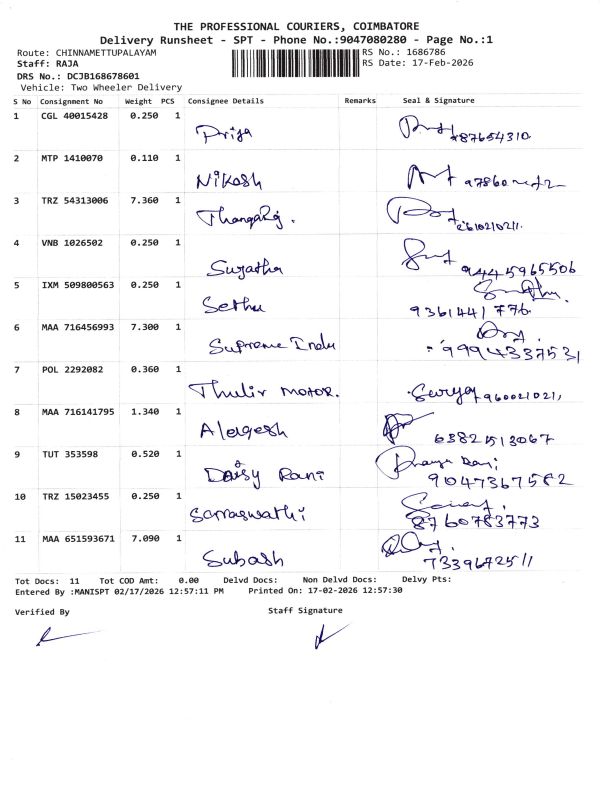 THE PROFESSIONAL COURIERS, COIMBATORE
Delivery Runsheet - SPT - Phone No.:9047080280 - Page No.:1
Route: CHINNAMETTUPALAYAM RS No.: 1686786
Staff: RAJA RS Date: 17-Feb-2026
DRS No.: DCJB168678601
Vehicle: Two Wheeler Delivery
S No Consignment No Weight PCS Consignee Details Remarks Seal & Signature
1 CGL 40015428 0.250 1
Priya
2 MTP 1410070 0.110 1
Nikash
3 TRZ 54313006 7.360 1
Thangaraj.
4 VNB 1026502 0.250 1
Sujatha 9445965506
5 IXM 509800563 0.250 1
Sethu 9361441776
6 MAA 716456993 7.300 1
Supreme Indu 9994337531
7 POL 2292082 0.360 1
Thulir MOTOR. Surya
8 MAA 716141795 1.340 1
Alagesh 6382513067
9 TUT 353598 0.520 1
Daisy Rani 9047367582
10 TRZ 15023455 0.250 1
Sarraswathi 8760783773
11 MAA 651593671 7.090 1
Subash 7339672511
Tot Docs: 11 Tot COD Amt: 0.00 Delvd Docs: Non Delvd Docs: Delvy Pts:
Entered By :MANISPT 02/17/2026 12:57:11 PM Printed On: 17-02-2026 12:57:30
Verified By Staff Signature